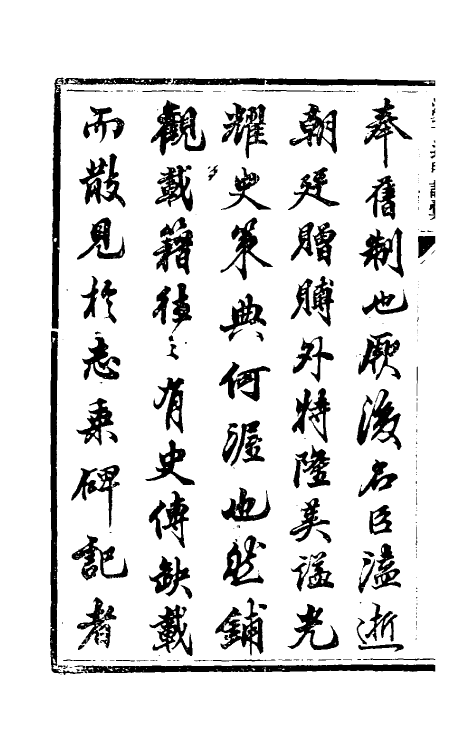 奉舊制也厥後名臣溘逝
朝廷贈賻外特隆美謚光
耀史策典何渥也然鋪
觀載籍往之有史傳缺載
而散見於志乘碑記者